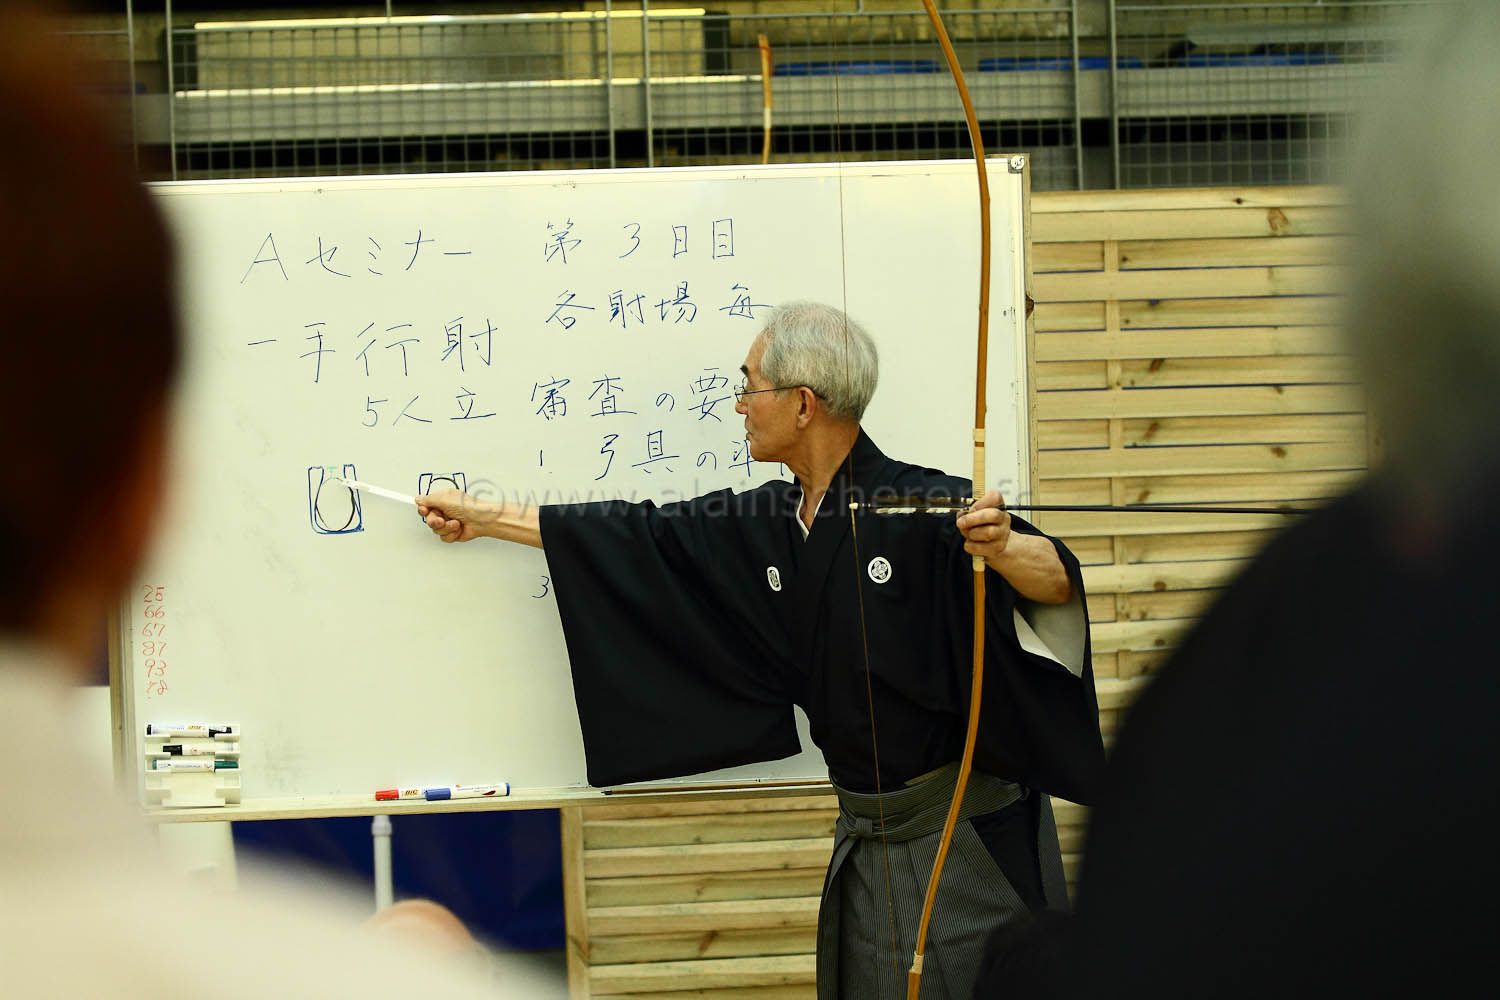 Aセミナー 第3日目
各射場毎
一手行射
5人立 審査の要
1. 弓具の準
3
25
66
67
87
93
BIC
©www.alainscherer.fr